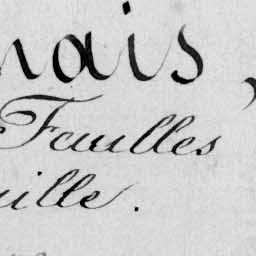 nais,
Feuilles
uille.